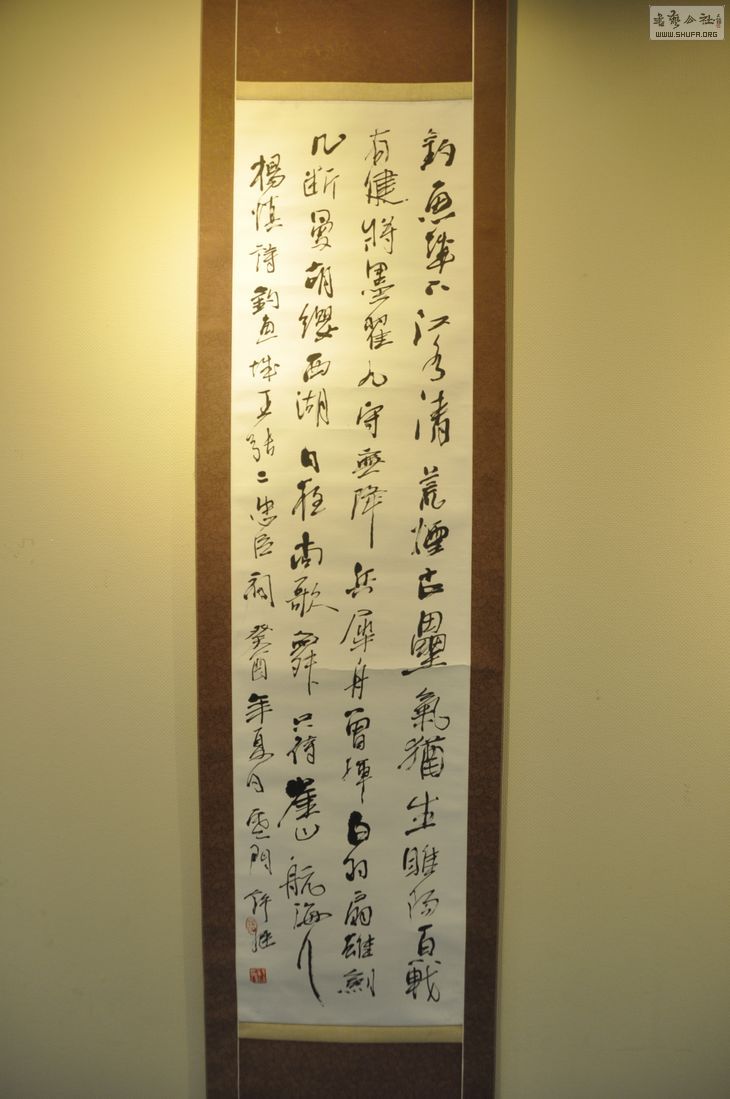 釣魚城下江水清荒煙古壘氣猶生睢陽百戰
有健將墨翟九守無降兵犀舟曾揮白羽扇雄劍
几斷曼胡纓西湖日夜尚歌舞只待崖山航海行
楊慎詩釣魚城王張二忠臣祠癸酉年夏月夔門許
書藝公社
WWW.SHUFA.ORG